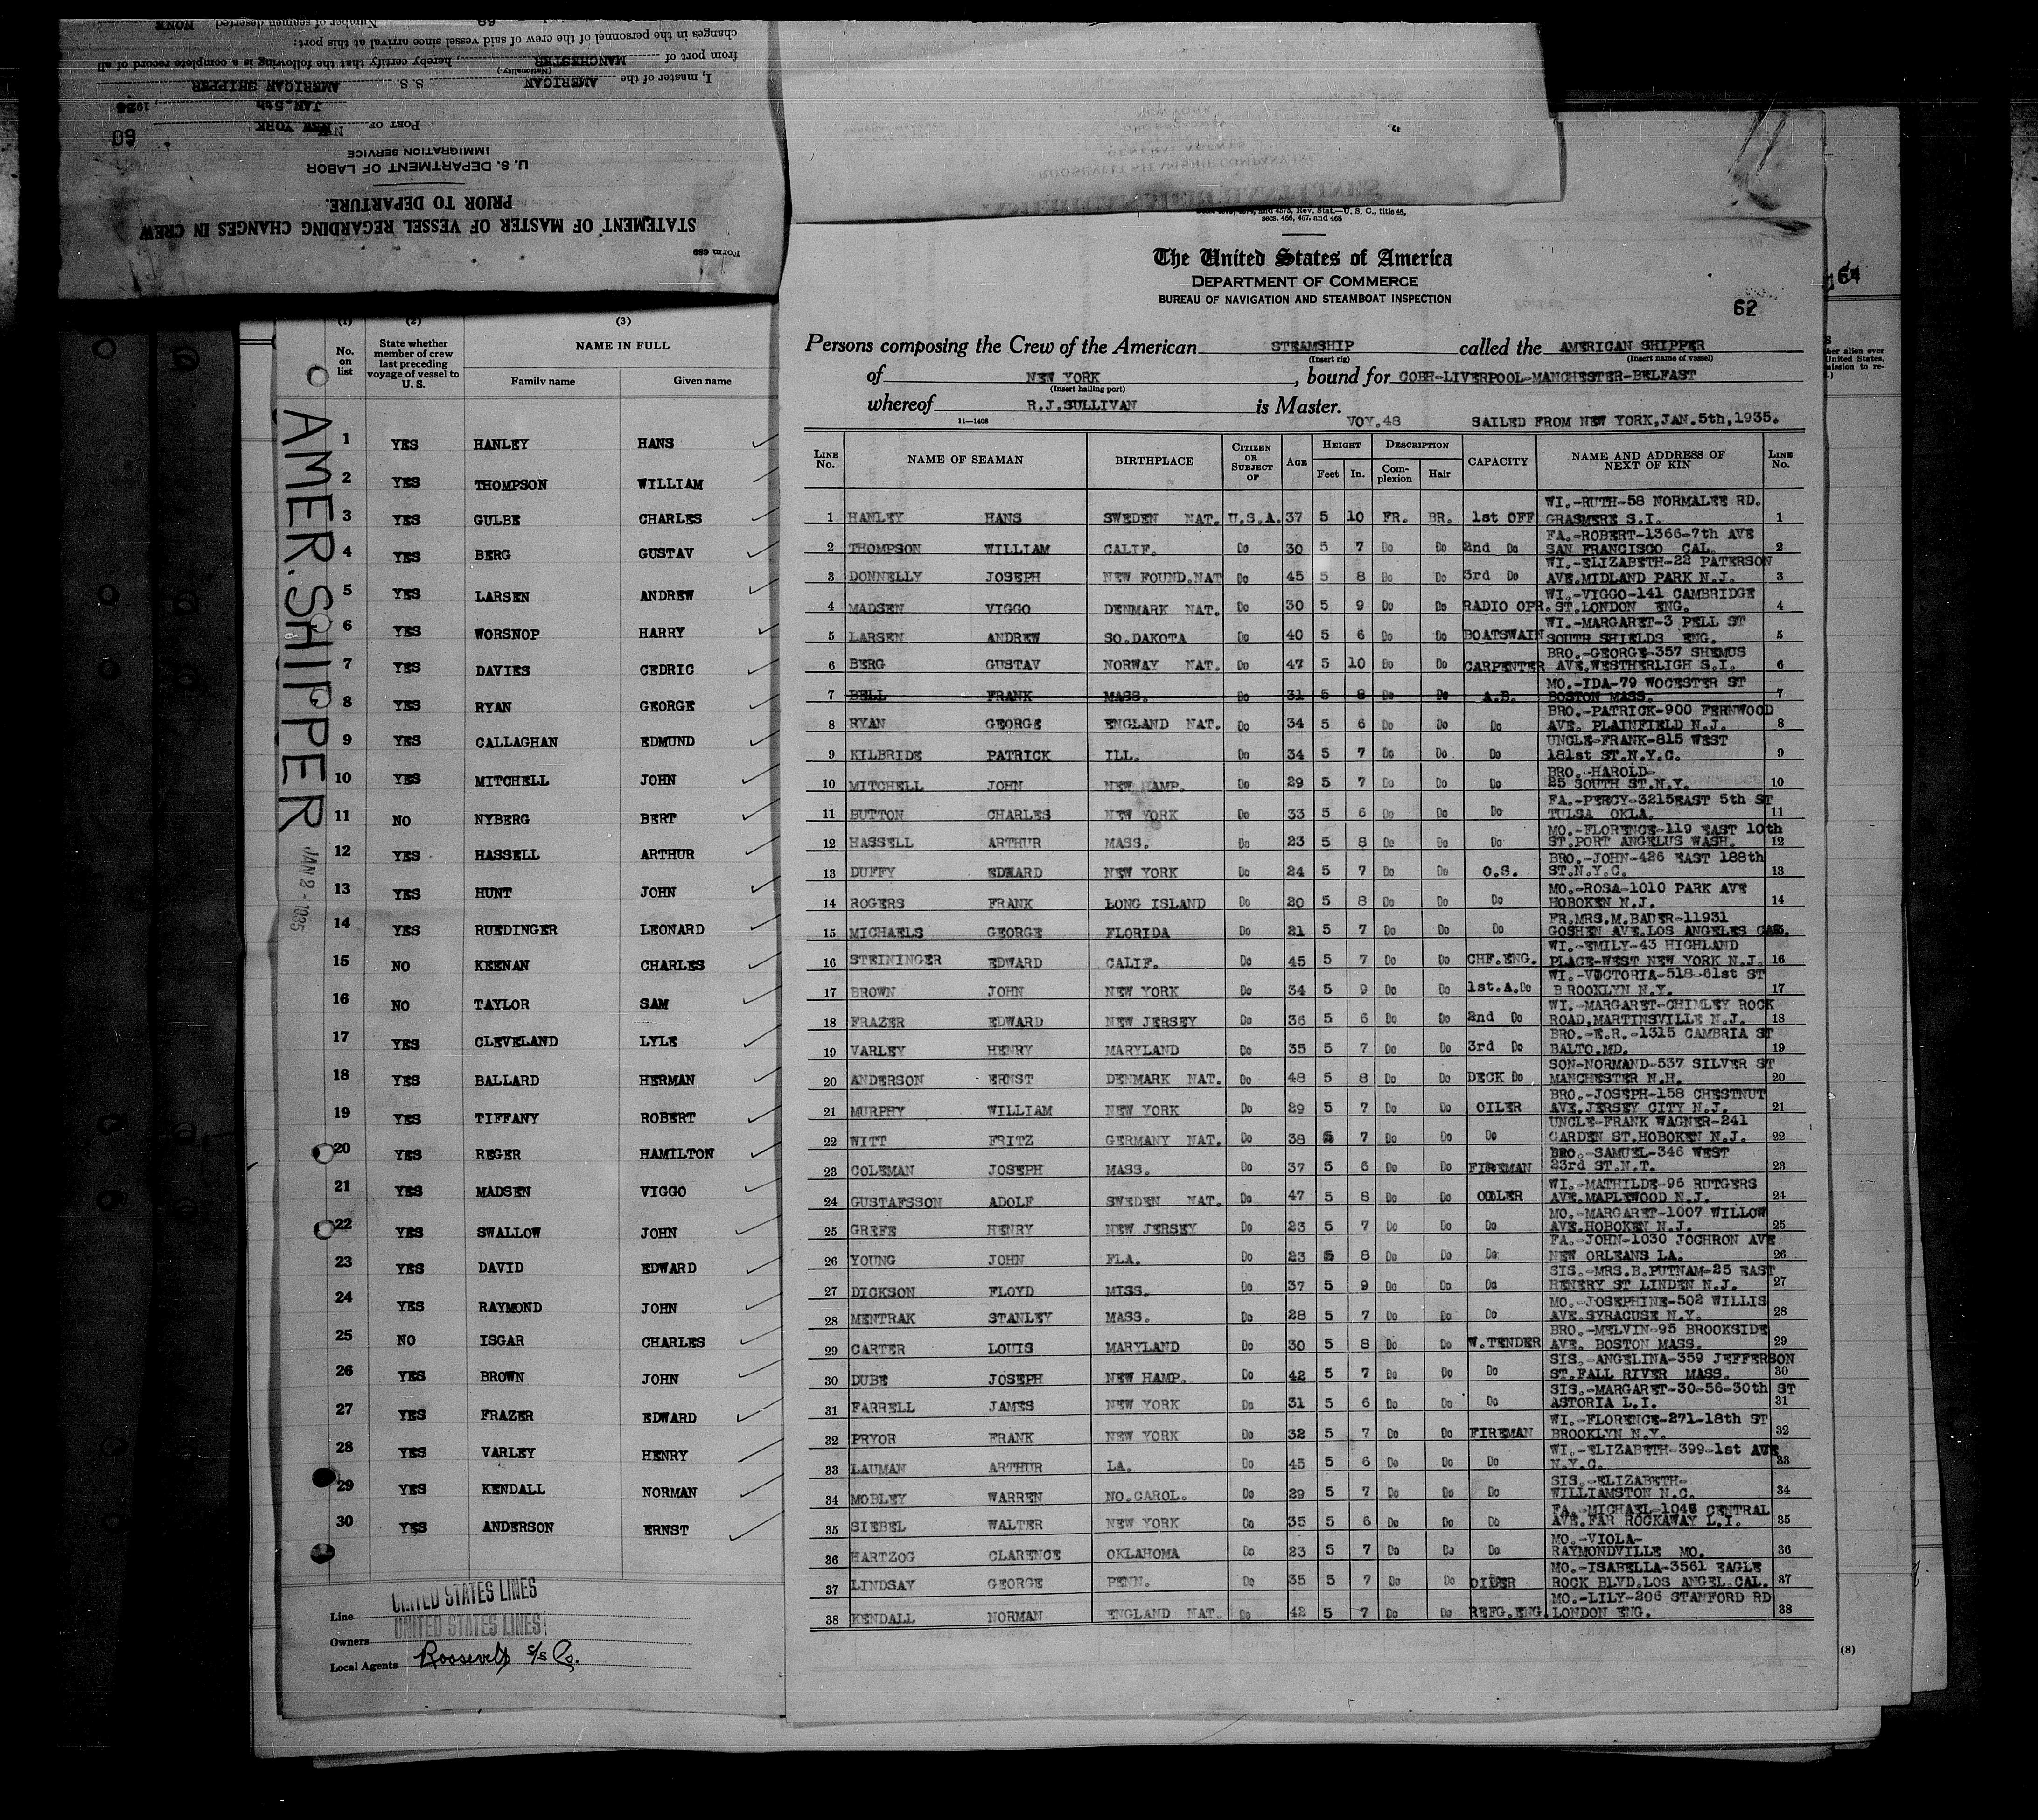 Form 689
STATEMENT OF MASTER OF VESSEL REGARDING CHANGES IN CREW
PRIOR TO DEPARTURE.
U. S. DEPARTMENT OF LABOR
IMMIGRATION SERVICE
PORT OF NEW YORK
JAN.5th
I, master of the AMERICAN S. S. AMERICAN SHIPPER
(Nationality)
from port of MANCHESTER, hereby certify that the following is a complete record of all
changes in the personnel of the crew of said vessel since arrival at this port:
Number of seamen deserted NONE
AMER. SHIPPER
JAN 2 - 1935
(1) (2) (3)
No. on list
State whether member of crew last preceding voyage of vessel to U. S.
NAME IN FULL
Family name Given name
1 YES HANLEY HANS
2 YES THOMPSON WILLIAM
3 YES GULBE CHARLES
4 YES BERG GUSTAV
5 YES LARSEN ANDREW
6 YES WORSNOP HARRY
7 YES DAVIES CEDRIC
8 YES RYAN GEORGE
9 YES CALLAGHAN EDMUND
10 YES MITCHELL JOHN
11 NO NYBERG BERT
12 YES HASSELL ARTHUR
13 YES HUNT JOHN
14 YES RUEDINGER LEONARD
15 NO KEENAN CHARLES
16 NO TAYLOR SAM
17 YES CLEVELAND LYLE
18 YES BALLARD HERMAN
19 YES TIFFANY ROBERT
20 YES REGER HAMILTON
21 YES MADSEN VIGGO
22 YES SWALLOW JOHN
23 YES DAVID EDWARD
24 YES RAYMOND JOHN
25 NO ISGAR CHARLES
26 YES BROWN JOHN
27 YES FRAZER EDWARD
28 YES VARLEY HENRY
29 YES KENDALL NORMAN
30 YES ANDERSON ERNST
Line UNITED STATES LINES
Owners UNITED STATES LINES
Local Agents Roosevelt S/S Co.
and 4575, Rev. Stat.—U. S. C., title 46,
secs. 466, 467, and 468
The United States of America
DEPARTMENT OF COMMERCE
BUREAU OF NAVIGATION AND STEAMBOAT INSPECTION
62
64
Persons composing the Crew of the American STEAMSHIP called the AMERICAN SHIPPER
(Insert rig) (Insert name of vessel)
of NEW YORK, bound for COBH-LIVERPOOL-MANCHESTER-BELFAST
(Insert hailing port)
whereof R.J.SULLIVAN is Master.
11—1406 VOY.48 SAILED FROM NEW YORK,JAN.5th,1935.
LINE No. NAME OF SEAMAN BIRTHPLACE CITIZEN OR SUBJECT OF AGE HEIGHT Feet In. DESCRIPTION Complexion Hair CAPACITY NAME AND ADDRESS OF NEXT OF KIN LINE No.
1 HANLEY HANS SWEDEN NAT. U.S.A. 37 5 10 FR. BR. 1st OFF WI.-RUTH-58 NORMALEE RD. GRASMERE S.I. 1
2 THOMPSON WILLIAM CALIF. Do 30 5 7 Do Do 2nd Do FA.-ROBERT-1366-7th AVE SAN FRANCISCO CAL. 2
3 DONNELLY JOSEPH NEW FOUND.NAT Do 45 5 8 Do Do 3rd Do WI.-ELIZABETH-22 PATERSON AVE.MIDLAND PARK N.J. 3
4 MADSEN VIGGO DENMARK NAT. Do 30 5 9 Do Do RADIO OPR. WI.-VIGGO-141 CAMBRIDGE ST.LONDON ENG. 4
5 LARSEN ANDREW SO.DAKOTA Do 40 5 6 Do Do BOATSWAIN WI.-MARGARET-3 PELL ST SOUTH SHIELDS ENG. 5
6 BERG GUSTAV NORWAY NAT. Do 47 5 10 Do Do CARPENTER BRO.-GEORGE-357 SHEMUS AVE.WESTHERLIGH S.I. 6
7 BELL FRANK MASS. Do 31 5 8 Do Do A.B. MO.-IDA-79 WOCESTER ST BOSTON MASS. 7
8 RYAN GEORGE ENGLAND NAT. Do 34 5 6 Do Do Do BRO.-PATRICK-900 FERNWOOD AVE. PLAINFIELD N.J. 8
9 KILBRIDE PATRICK ILL. Do 34 5 7 Do Do Do UNCLE-FRANK-815 WEST 181st ST.N.Y.C. 9
10 MITCHELL JOHN NEW HAMP. Do 29 5 7 Do Do Do BRO.-HAROLD- 25 SOUTH ST.N.Y. 10
11 BUTTON CHARLES NEW YORK Do 33 5 6 Do Do Do FA.-PERCY-3215EAST 5th ST TULSA OKLA. 11
12 HASSELL ARTHUR MASS. Do 23 5 8 Do Do Do MO.-FLORENCE-119 EAST 10th ST.PORT ANGELUS WASH. 12
13 DUFFY EDWARD NEW YORK Do 24 5 7 Do Do O.S. BRO.-JOHN-426 EAST 188th ST.N.Y.C. 13
14 ROGERS FRANK LONG ISLAND Do 20 5 8 Do Do Do MO.-ROSA-1010 PARK AVE HOBOKEN N.J. 14
15 MICHAELS GEORGE FLORIDA Do 21 5 7 Do Do Do FR.MRS.M.BAUER-11931 GOSHEN AVE.LOS ANGELES CAL. 15
16 STEININGER EDWARD CALIF. Do 45 5 7 Do Do CHF.ENG. WI.-EMILY-43 HIGHLAND PLACE-WEST NEW YORK N.J. 16
17 BROWN JOHN NEW YORK Do 34 5 9 Do Do 1st.A.Do WI.-VICTORIA-518-61st ST BROOKLYN N.Y. 17
18 FRAZER EDWARD NEW JERSEY Do 36 5 6 Do Do 2nd Do WI.-MARGARET-CHIMLEY ROCK ROAD,MARTINSVILLE N.J. 18
19 VARLEY HENRY MARYLAND Do 35 5 7 Do Do 3rd Do BRO.-E.R.-1315 CAMBRIA ST BALTO.MD. 19
20 ANDERSON ERNST DENMARK NAT. Do 48 5 8 Do Do DECK Do SON-NORMAND-537 SILVER ST MANCHESTER N.H. 20
21 MURPHY WILLIAM NEW YORK Do 29 5 7 Do Do OILER BRO.-JOSEPH-158 CHESTNUT AVE.JERSEY CITY N.J. 21
22 WITT FRITZ GERMANY NAT. Do 38 5 7 Do Do Do UNCLE-FRANK WAGNER-241 GARDEN ST.HOBOKEN N.J. 22
23 COLEMAN JOSEPH MASS. Do 37 5 6 Do Do FIREMAN BRO.-SAMUEL-346 WEST 23rd ST.N.T. 23
24 GUSTAFSSON ADOLF SWEDEN NAT. Do 47 5 8 Do Do OILER WI.-MATHILDE-96 RUTGERS AVE.MAPLEWOOD N.J. 24
25 GREFE HENRY NEW JERSEY Do 23 5 7 Do Do Do MO.-MARGARET-1007 WILLOW AVE.HOBOKEN N.J. 25
26 YOUNG JOHN FLA. Do 23 5 8 Do Do Do FA.-JOHN-1030 JOGHRON AVE NEW ORLEANS LA. 26
27 DICKSON FLOYD MISS. Do 37 5 9 Do Do Do SIS.-MRS.B.PUTNAM-25 EAST HENERY ST LINDEN N.J. 27
28 MENTRAK STANLEY MASS. Do 28 5 7 Do Do Do MO.-JOSEPHINE-502 WILLIS AVE.SYRACUSE N.Y. 28
29 CARTER LOUIS MARYLAND Do 30 5 8 Do Do W.TENDER BRO.-MELVIN-95 BROOKSIDE AVE. BOSTON MASS. 29
30 DUBE JOSEPH NEW HAMP. Do 42 5 7 Do Do Do SIS.-ANGELINA-359 JEFFERSON ST.FALL RIVER MASS. 30
31 FARRELL JAMES NEW YORK Do 31 5 6 Do Do Do SIS.-MARGARET-30-56-30th ST ASTORIA L.I. 31
32 PRYOR FRANK NEW YORK Do 32 5 7 Do Do FIREMAN WI.-FLORENCE-271-18th ST BROOKLYN N.Y. 32
33 LAUMAN ARTHUR LA. Do 45 5 6 Do Do Do WI.-ELIZABETH-399-1st AVE N.Y.C. 33
34 MOBLEY WARREN NO.CAROL. Do 29 5 7 Do Do Do SIS.-ELIZABETH- WILLIAMSTON N.C. 34
35 SIEBEL WALTER NEW YORK Do 35 5 6 Do Do Do FA.-MICHAEL-1048 CENTRAL AVE.FAR ROCKAWAY L.I. 35
36 HARTZOG CLARENCE OKLAHOMA Do 23 5 7 Do Do Do MO.-VIOLA- RAYMONDVILLE MO. 36
37 LINDSAY GEORGE PENN. Do 35 5 7 Do Do OILER MO.-ISABELLA-3561 EAGLE ROCK BLVD.LOS ANGEL.CAL. 37
38 KENDALL NORMAN ENGLAND NAT. Do 42 5 7 Do Do REFG.ENG. MO.-LILY-206 STANFORD RD LONDON ENG. 38
(8)